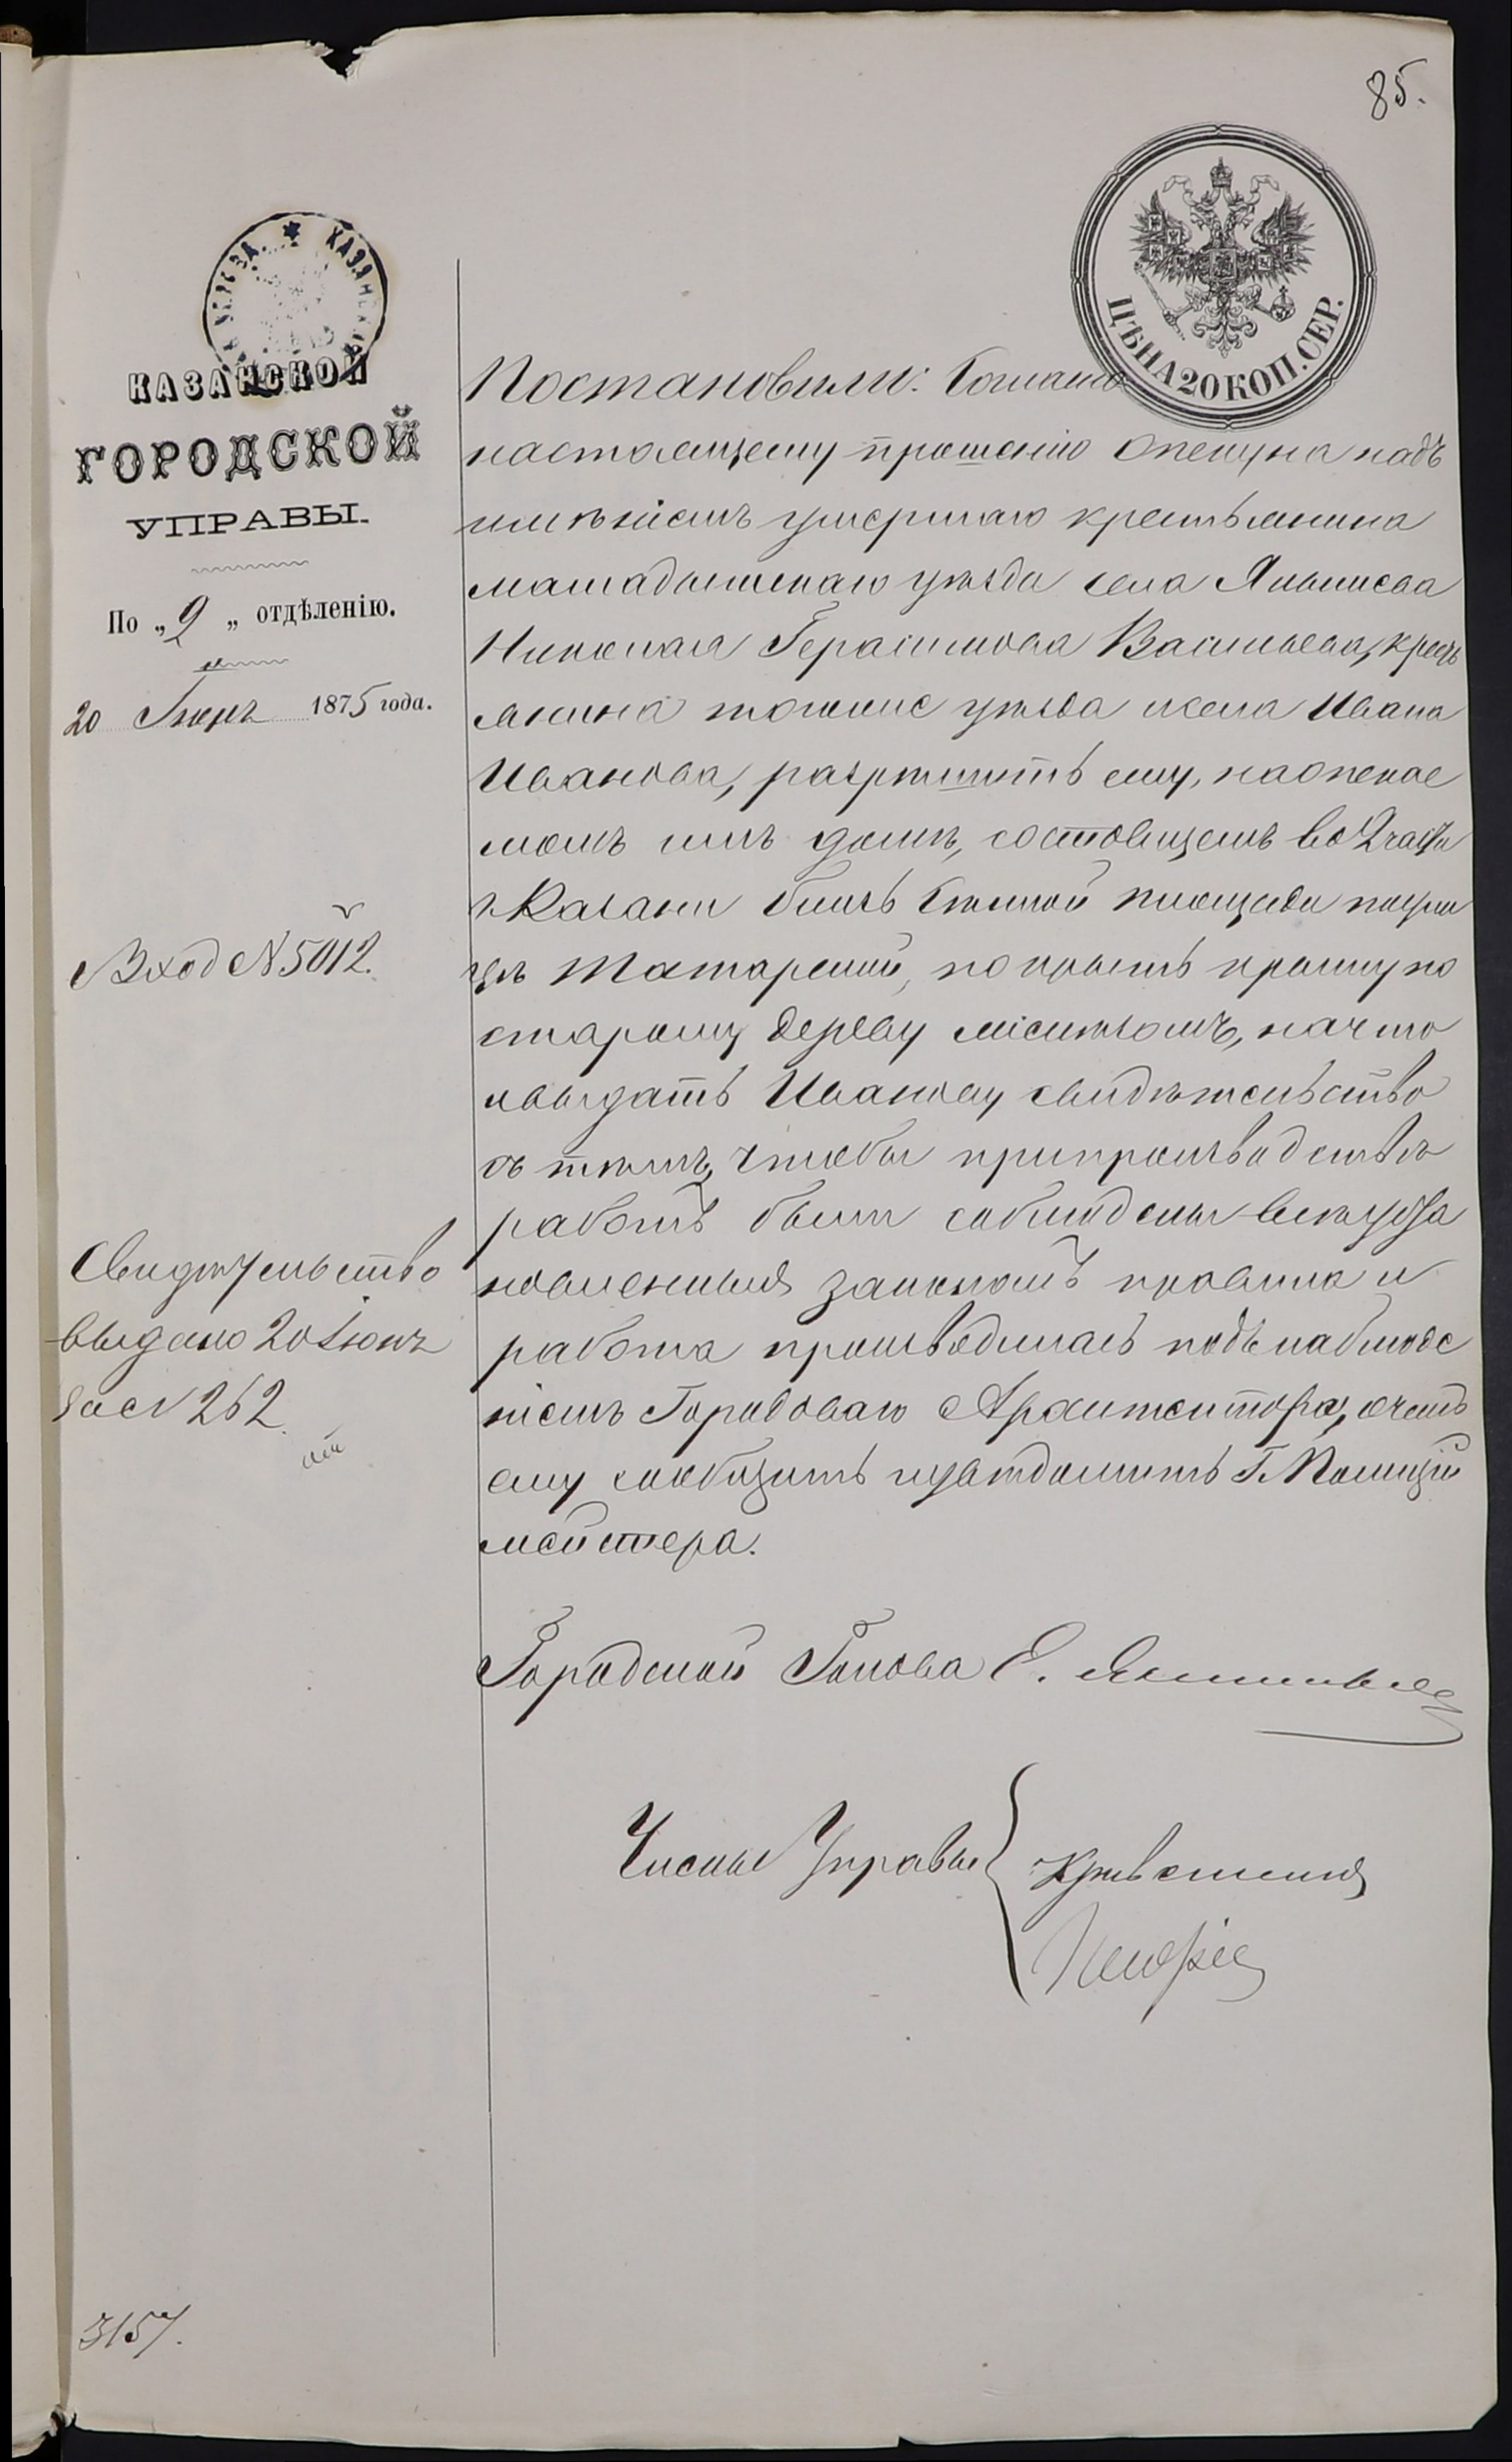 85.
ЦѢНА 20 КОП. СЕР.
КАЗАНСКОЙ
ГОРОДСКОЙ
УПРАВЫ.
По „2„ отдѣленію.
20 Іюня 1875 года.
Вход N 5012.
Свидѣтельство
выдано 20 Іюня
за N 262.
3157.
Постановили: Согласно
настоящему прошенію опекуна надъ
имѣніемъ умершаго крестьянина
мамадышскаго уѣзда села
Николая Герасимова Васильева, кресть
янина тогоже уѣзда исела Ивана
Иванова, разрѣшить ему, наопекае
момъ имъ домѣ, состоящемъ во 2 части
г. Казани близь Сѣнной площади поули
цѣ Татарской, покрыть крышу по
старому дереву желѣзомъ, начто
ивыдать Иванову свидѣтельство
съ тѣмъ, чтобы припроизводствѣ
работъ были соблюдены всѣ уста
новленныя закономъ правила и
работа производилась подъ наблюде
ніемъ Городоваго Архитектора, очемъ
ему сообщить иувѣдомить Г. Полиций
мейстера.
Городской Голова Е.
Члены Управы